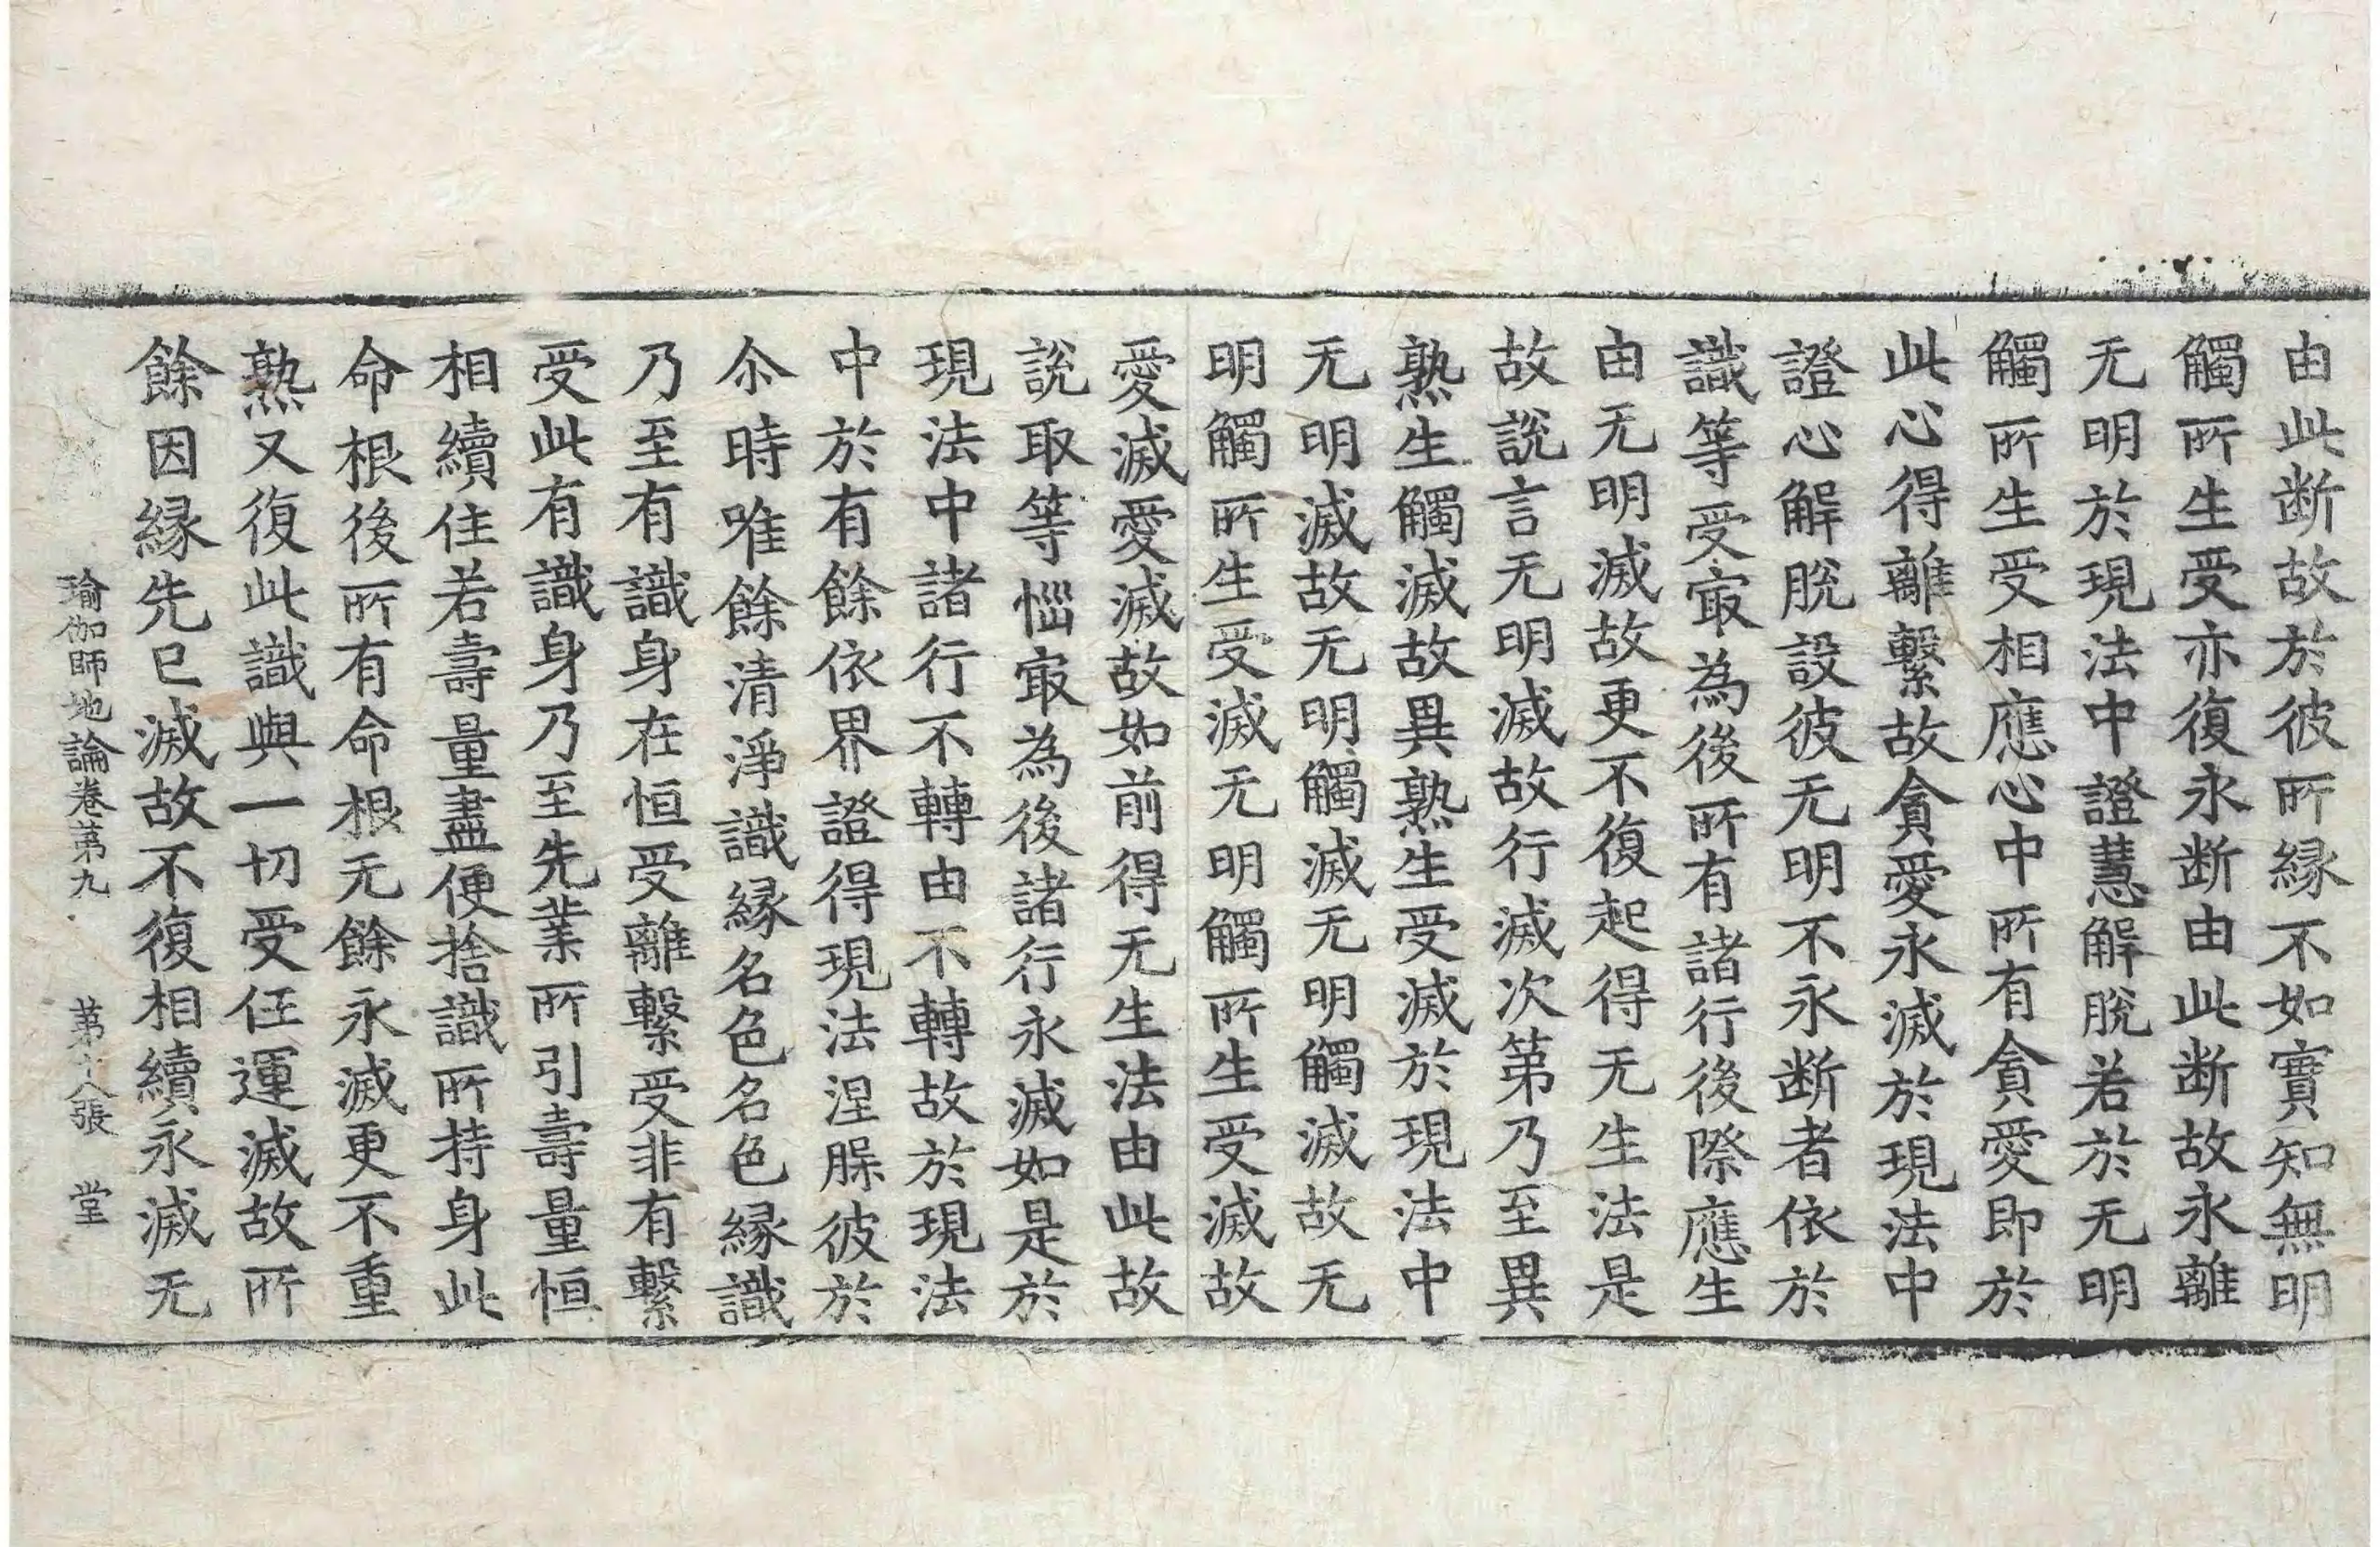 由此断故於彼所縁不如實知無明
觸所生受亦復永断由此断故永離
无明於現法中證慧解脫若於无明
觸所生受相應心中所有貪愛即於
此心得離繫故貪愛永滅於現法中
證心解脫設彼无明不永断者依於
識等受㝡為後所有諸行後際應生
由无明滅故更不復起得无生法是
故說言无明滅故行滅次第乃至異
熟生觸滅故異熟生受滅於現法中
无明滅故无明觸滅无明觸滅故无
明觸所生受滅无明觸所生受滅故
愛滅愛滅故如前得无生法由此故
說取等惱㝡為後諸行永滅如是於
現法中諸行不轉由不轉故於現法
中於有餘依界證得現法涅槃彼於
尒時唯餘清淨識縁名色名色縁識
乃至有識身在恒受離繫受非有繫
受此有識身乃至先業所引壽量恒
相續住若壽量盡便捨識所持身此
命根後所有命根无餘永滅更不重
熟又復此識與一切受任運滅故所
餘因縁先已滅故不復相續永滅无
瑜伽師地論卷第九 第十八張 堂